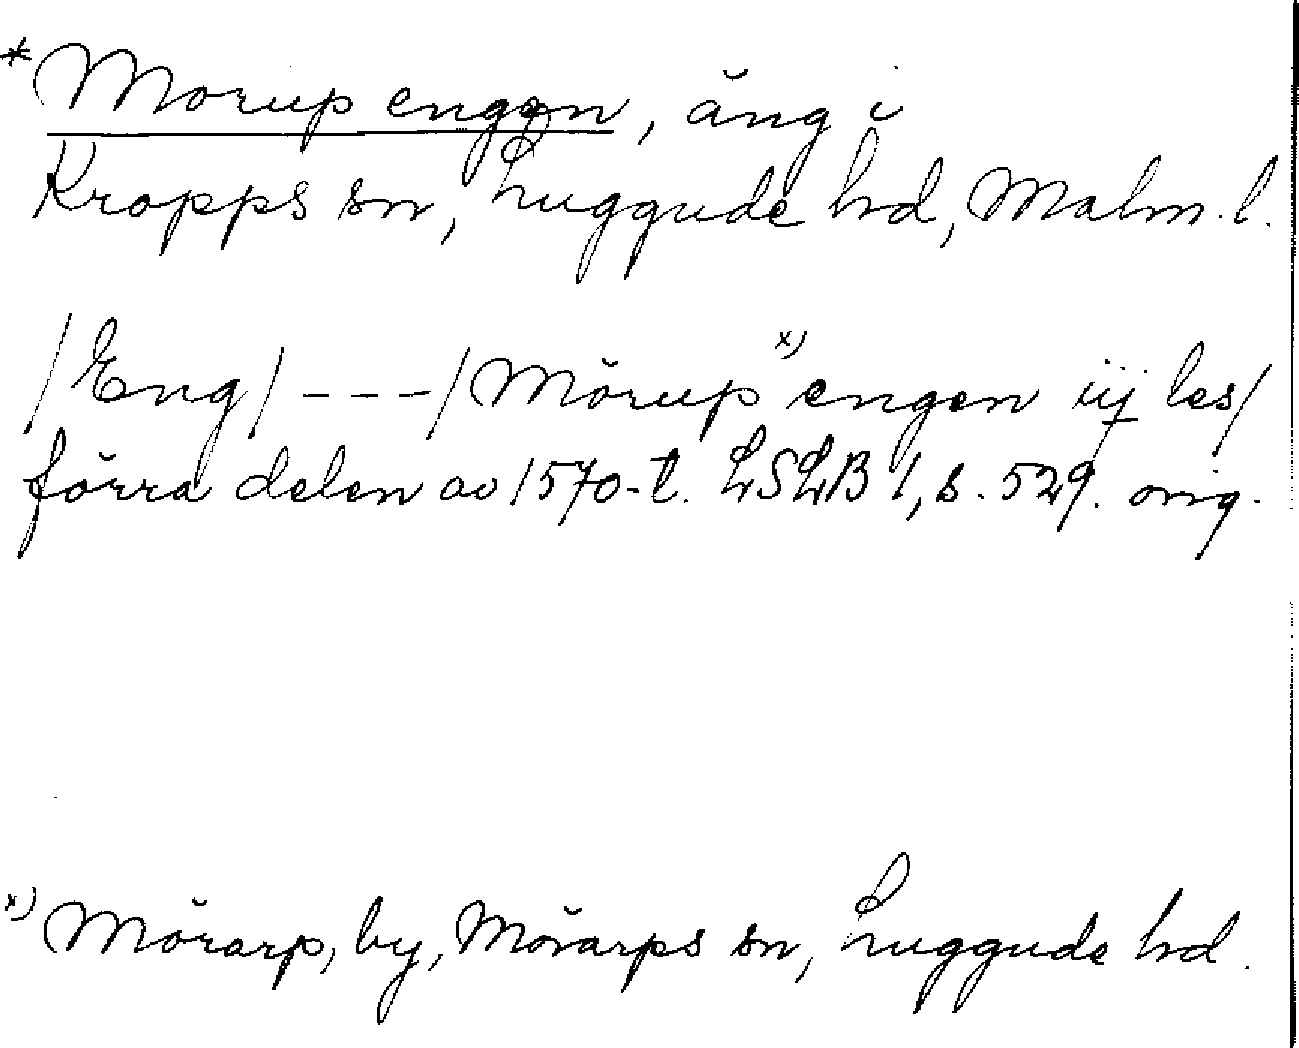 *Morup engen, äng i
Kropps sn, Luggude hd, Malm. l.
/Eng/ - - - / Mörup x) engen iij les/
förra delen av 1570-t. LSLB 1, s. 529. orig.
x) Mörarp, by, Mörarps sn, Luggude hd.